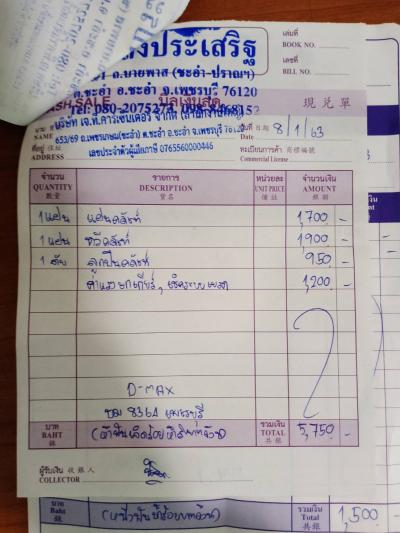 งประเสริฐ
ถ.บายพาส (ชะอำ-ปราณฯ)
ต.ชะอำ อ.ชะอำ จ.เพชรบุรี 76120
CASH SALE บิลเงินสด 現兌單
เล่มที่
BOOK NO.
เลขที่
BILL NO.
วันที่ 日期 8/1/63
Date
NAME
ที่อยู่ 住址
ADDRESS
653/69 ถ.เพชรเกษม(ชะอำ) ต.ชะอำ อ.ชะอำ จ.เพชรบุรี 76120
เลขประจำตัวผู้เสียภาษี 0765560000446
ทะเบียนการค้า 商標編號
Commercial License
จำนวน รายการ หน่วยละ จำนวนเงิน
QUANTITY DESCRIPTION UNIT PRICE AMOUNT
數量 貨名 價註 銀額
1 แผ่น แผ่นคลัทช์ 1,700 -
1 แผ่น หวีคลัทช์ 1900 -
1 ตับ ลูกปืนคลัทช์ 950 -
ค่าแรงยกเกียร์, 1,200 -
D-MAX
8364 เพชรบุรี
บาท (ห้าพันเจ็ดร้อยห้าสิบบาทถ้วน) รวมเงิน 5,750 -
BAHT TOTAL
銖 共銀
ผู้รับเงิน 收銀人
COLLECTOR
บาท (หนึ่งพันห้าร้อยบาทถ้วน) รวมเงิน 1,500 -
Baht Total
銖 共銀